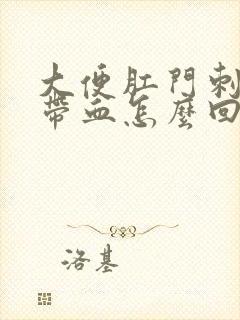 大便肛門刺
帶血怎麼回
洛基